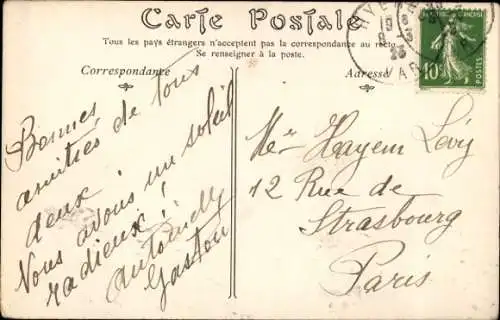 Carte Postale
Tous les pays étrangers n'acceptent pas la correspondance au recto
Se renseigner à la poste.
Correspondance
Adresse
Bonnes
amitiés de tous
deux !
Nous avons un soleil
radieux !
Antoinette
Gaston
Mr Hayem Lévy
12 Rue de
Strasbourg
Paris
HYÈRES
10c
POSTES